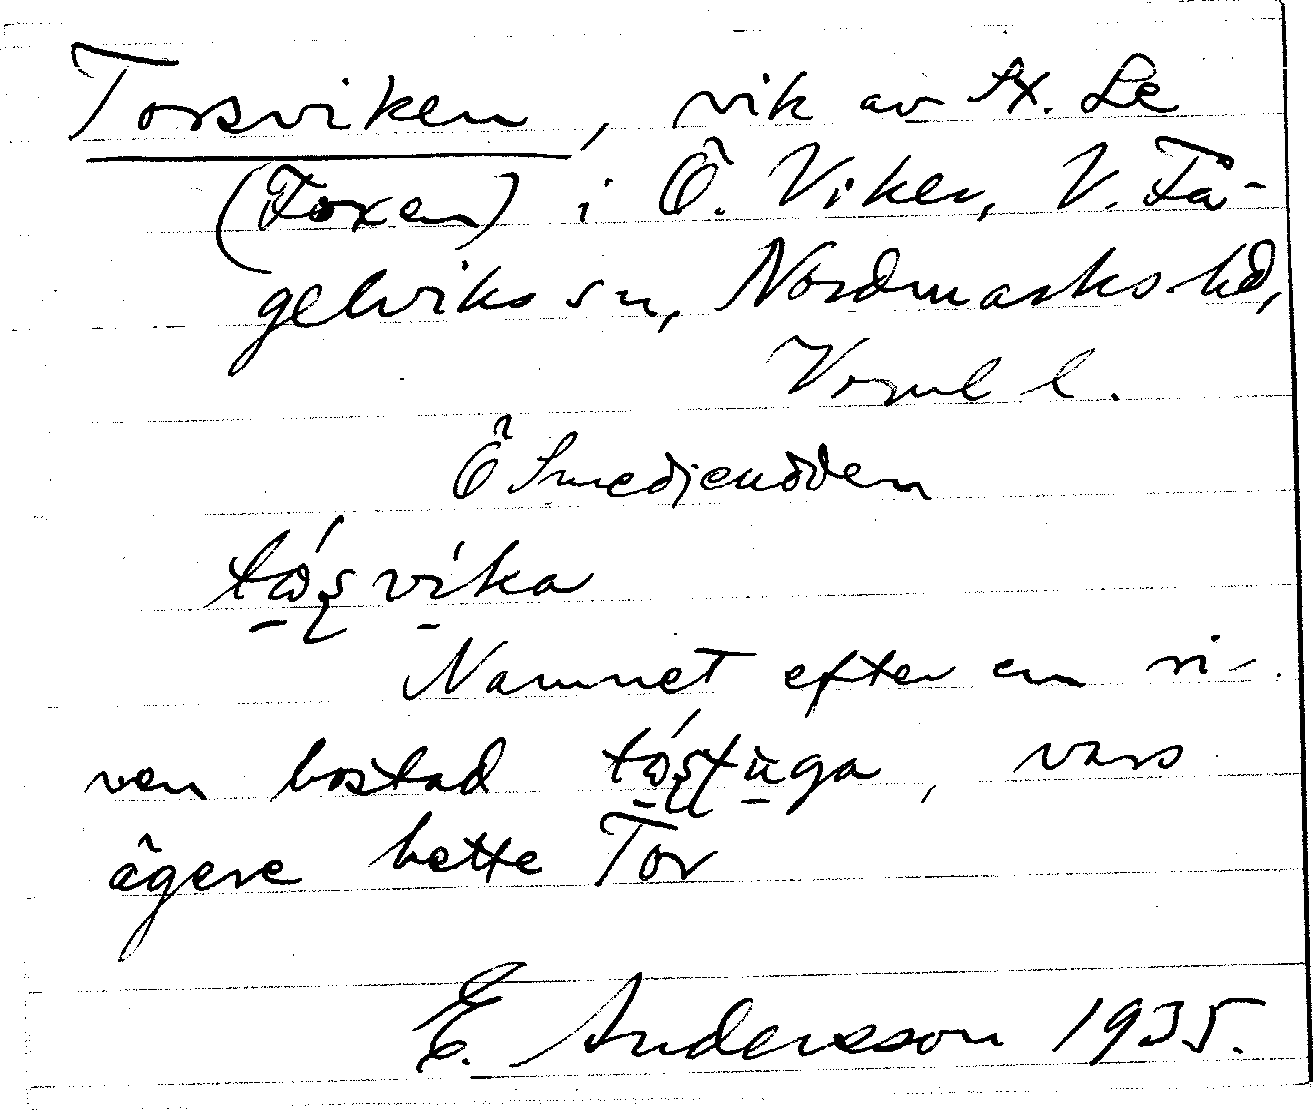 Torsviken, vik av St. Le
(Foxen) i Ö. Viker, V. Få-
gelviks sn, Nordmarks hd,
Vrml l.
Ö Smedjeudden
tớʂvíka
Namnet efter en ri-
ven bostad tớʂʈuga, vars
ägare hette Tor
E. Andersson 1935.